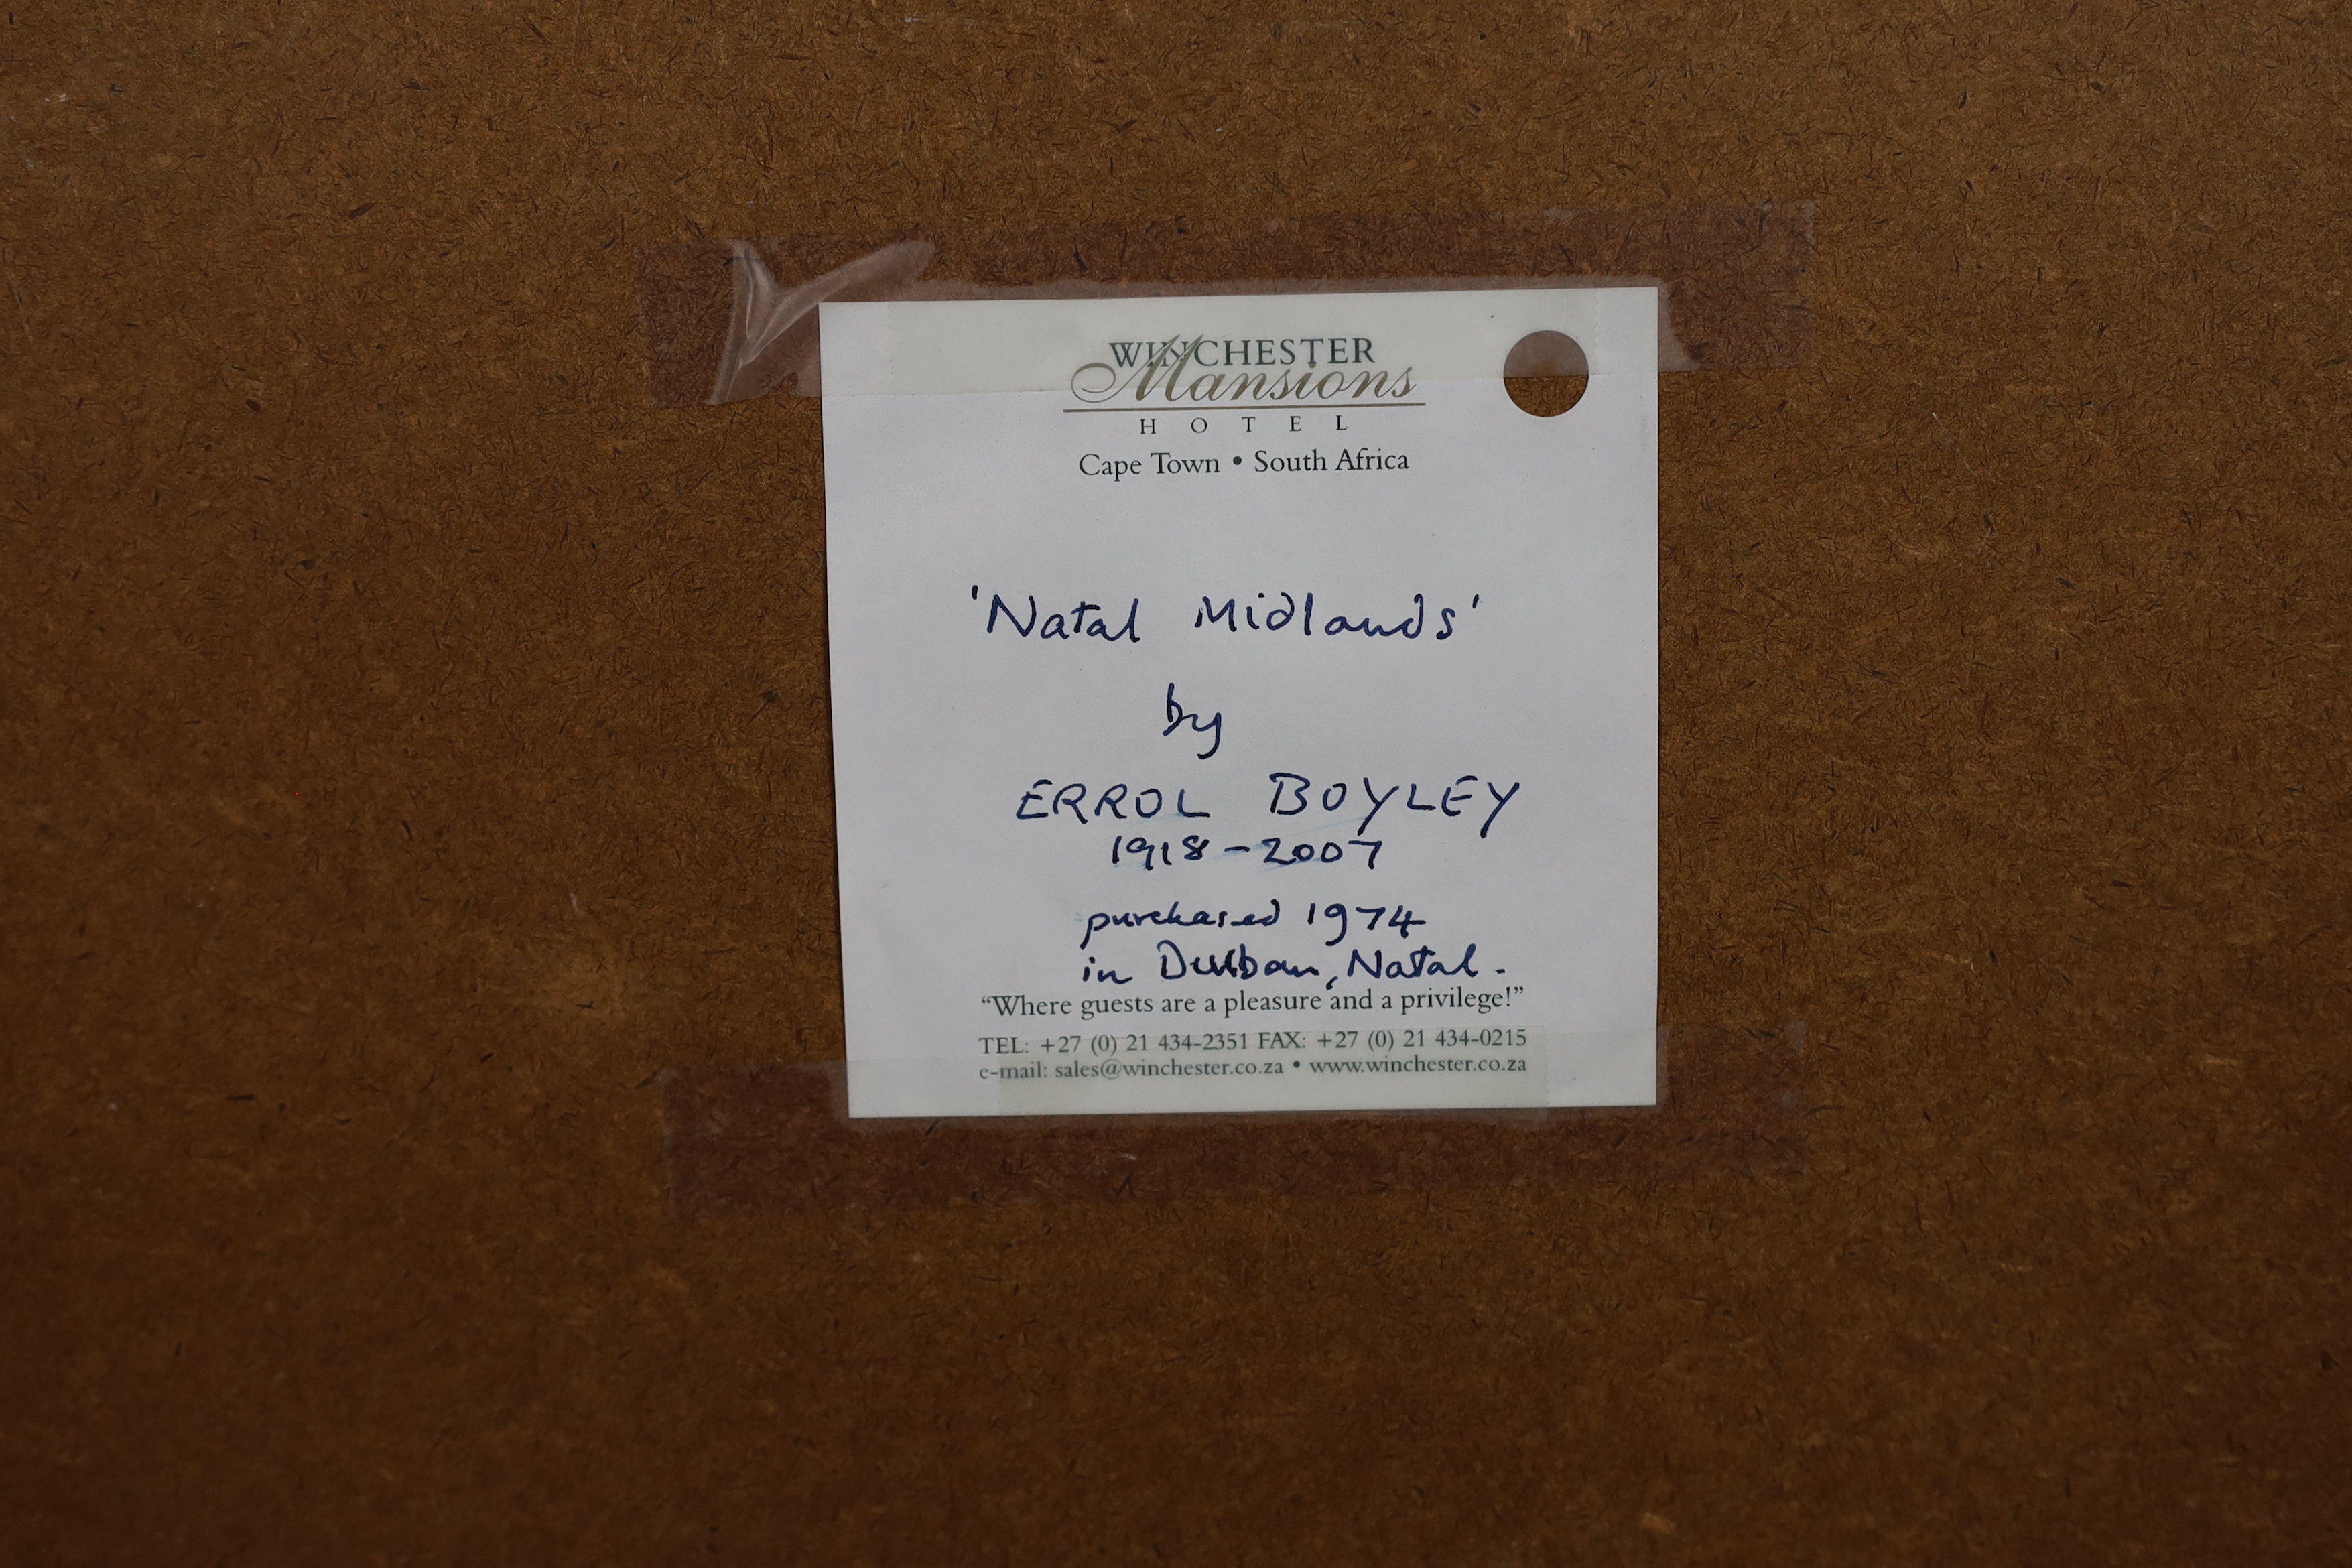 WINCHESTER
Mansions
HOTEL
Cape Town • South Africa
'Natal Midlands'
by
ERROL BOYLEY
1918-2007
purchased 1974
in Durban, Natal.
“Where guests are a pleasure and a privilege!”
TEL: +27 (0) 21 434-2351 FAX: +27 (0) 21 434-0215
e-mail: sales@winchester.co.za • www.winchester.co.za